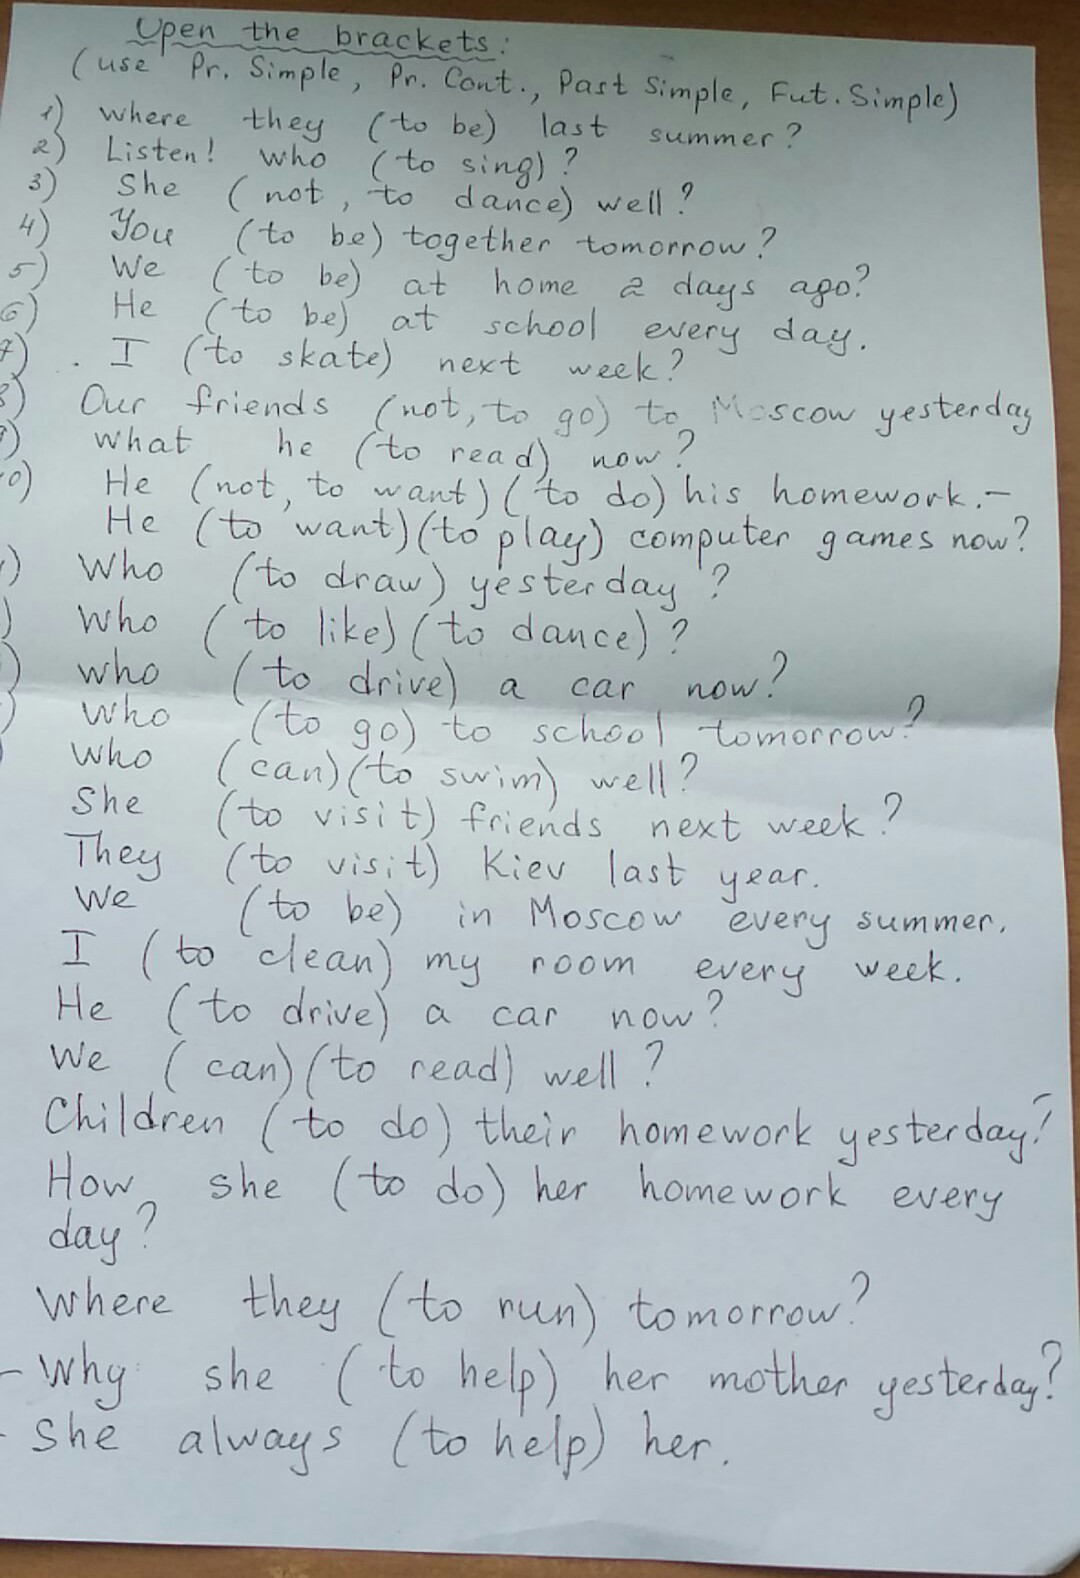 Open the brackets:
(use Pr. Simple, Pr. Cont., Past Simple, Fut. Simple)
1) where they (to be) last summer?
2) Listen! who (to sing)?
3) She (not, to dance) well?
4) You (to be) together tomorrow?
5) We (to be) at home 2 days ago?
6) He (to be) at school every day.
7) . I (to skate) next week?
8) Our friends (not, to go) to Moscow yesterday
9) what he (to read) now?
0) He (not, to want) (to do) his homework. –
He (to want) (to play) computer games now?
) Who (to draw) yesterday?
) Who (to like) (to dance)?
) who (to drive) a car now?
) who (to go) to school tomorrow?
who (can) (to swim) well?
She (to visit) friends next week?
They (to visit) Kiev last year.
We (to be) in Moscow every summer.
I (to clean) my room every week.
He (to drive) a car now?
We (can) (to read) well?
Children (to do) their homework yesterday?
How she (to do) her homework every
day?
Where they (to run) tomorrow?
– Why she (to help) her mother yesterday?
- She always (to help) her.